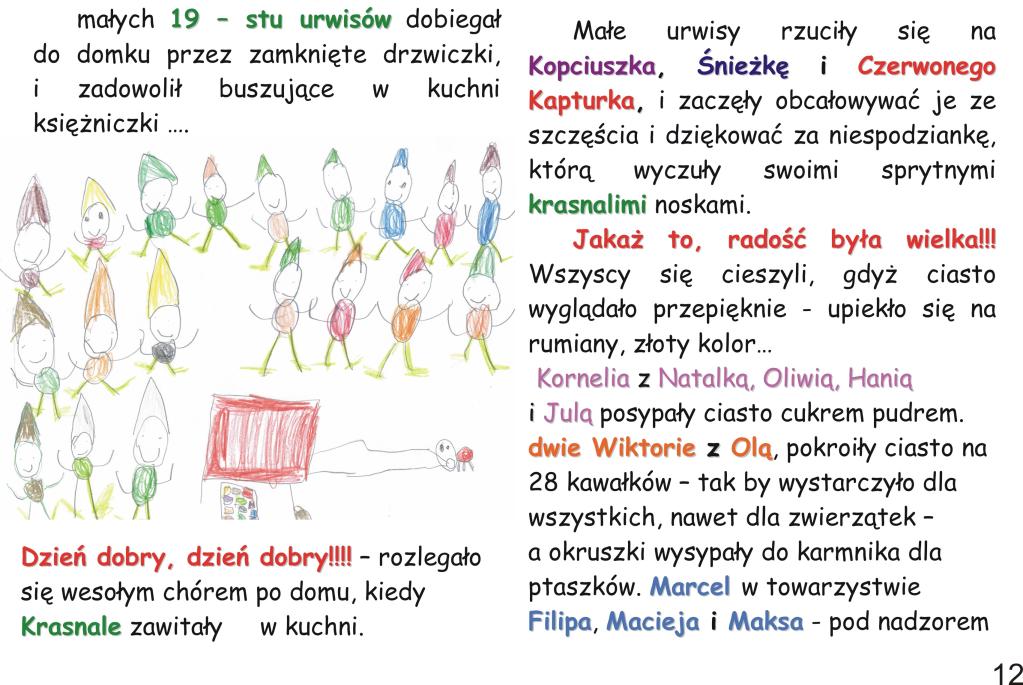 małych 19 – stu urwisów dobiegał
do domku przez zamknięte drzwiczki,
i zadowolił buszujące w kuchni
księżniczki ….
Dzień dobry, dzień dobry!!!! – rozlegało
się wesołym chórem po domu, kiedy
Krasnale zawitały w kuchni.
Małe urwisy rzuciły się na
Kopciuszka, Śnieżkę i Czerwonego
Kapturka, i zaczęły obcałowywać je ze
szczęścia i dziękować za niespodziankę,
którą wyczuły swoimi sprytnymi
krasnalimi noskami.
Jakaż to, radość była wielka!!!
Wszyscy się cieszyli, gdyż ciasto
wyglądało przepięknie - upiekło się na
rumiany, złoty kolor…
Kornelia z Natalką, Oliwią, Hanią
i Julą posypały ciasto cukrem pudrem.
dwie Wiktorie z Olą, pokroiły ciasto na
28 kawałków – tak by wystarczyło dla
wszystkich, nawet dla zwierzątek –
a okruszki wysypały do karmnika dla
ptaszków. Marcel w towarzystwie
Filipa, Macieja i Maksa - pod nadzorem
12